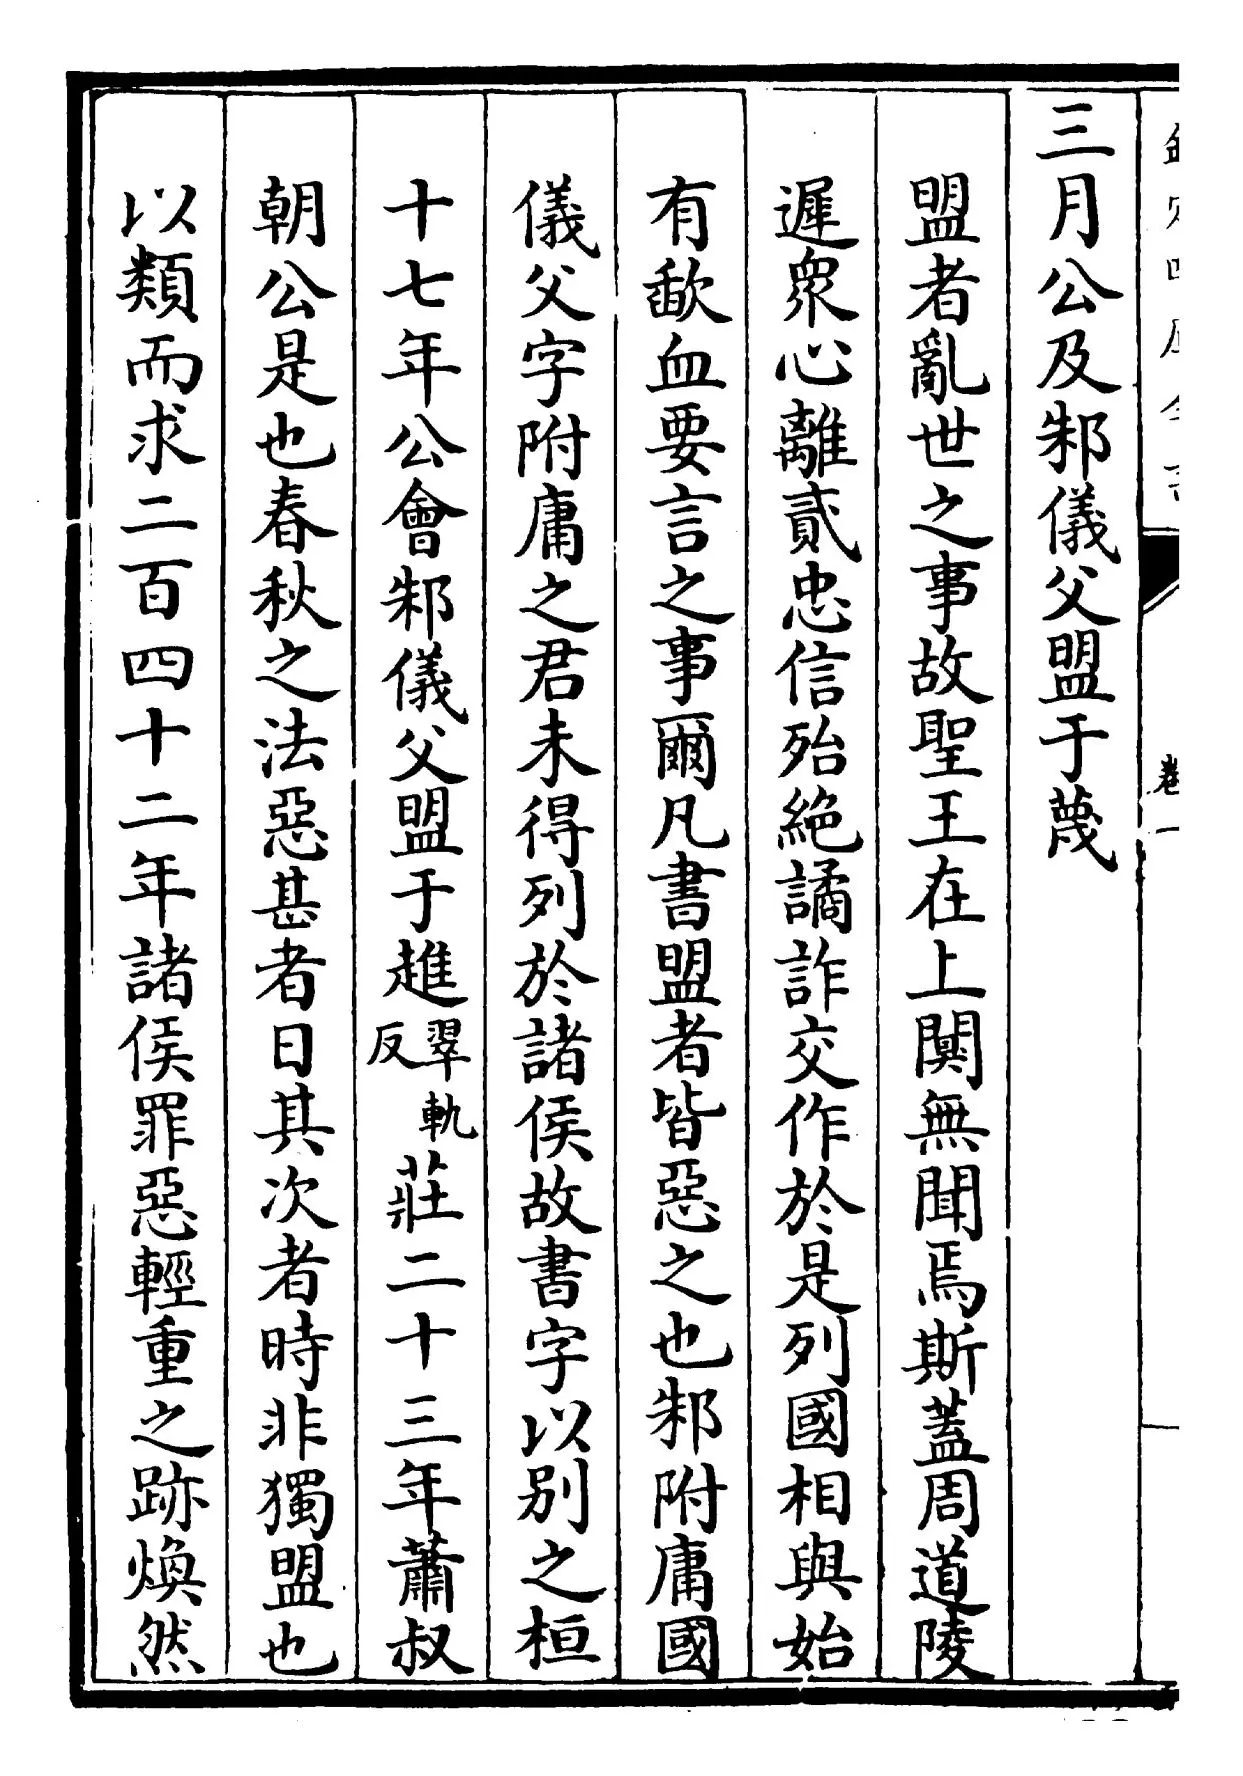 欽定四庫全書
卷一
三月公及邾儀父盟于蔑
盟者亂世之事故聖王在上闃無聞焉斯蓋周道陵
遲衆心離貳忠信殆絶譎詐交作於是列國相與始
有歃血要言之事爾凡書盟者皆惡之也邾附庸國
儀父字附庸之君未得列於諸侯故書字以别之桓
十七年公會邾儀父盟于趡翠軌反莊二十三年蕭叔
朝公是也春秋之法惡甚者日其次者時非獨盟也
以類而求二百四十二年諸侯罪惡輕重之跡煥然